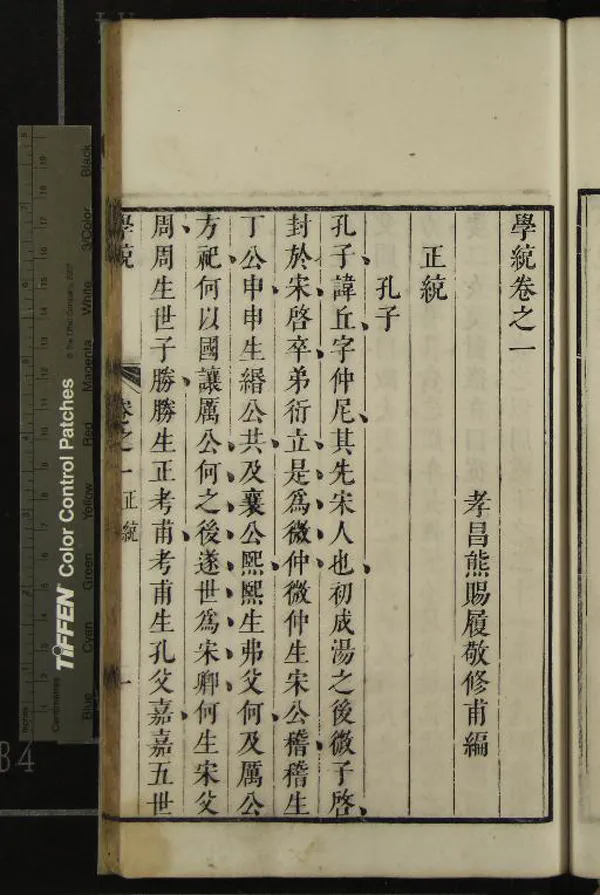 學統卷之一
孝昌熊賜履敬修甫編
正統
孔子
孔子諱丘字仲尼其先宋人也初成湯之後微子啓
封於宋啓卒弟衍立是爲微仲微仲生宋公稽稽生
丁公申申生緡公共及襄公熙熙生弗父何及厲公
方祀何以國讓厲公何之後遂世爲宋卿何生宋父
周周生世子勝勝生正考甫考甫生孔父嘉嘉五世
學統 卷之一 正統 一
TIFFEN Color Control Patches
Blue
Cyan
Green
Yellow
Red
Magenta
White
3/Color
Black
Inches
Centimetres
84